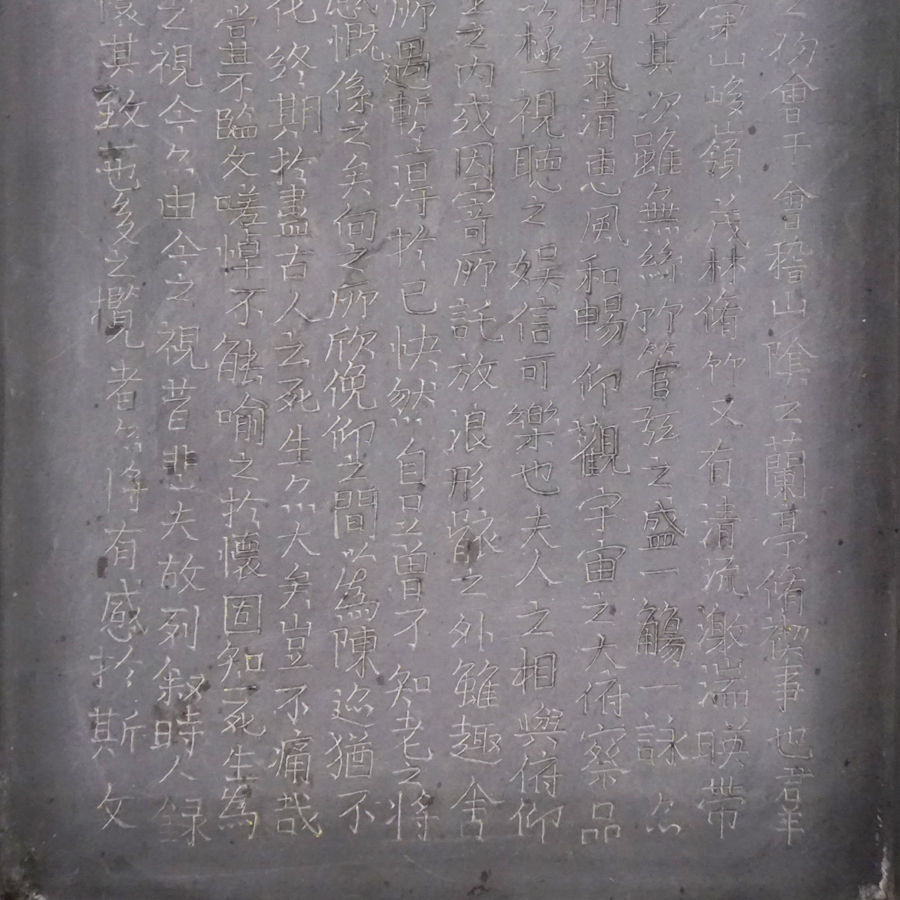 之初會于會稽山陰之蘭亭脩禊事也羣
崇山峻嶺茂林脩竹又有清流激湍暎帶
坐其次雖無絲竹管弦之盛一觴一詠亦
朗氣清惠風和暢仰觀宇宙之大俯察品
以極視聽之娛信可樂也夫人之相與俯仰
室之內或因寄所託放浪形骸之外雖趣舍
所遇暫得於己快然自足曾不知老之將
感慨係之矣向之所欣俛仰之間以為陳迹猶不
化終期於盡古人云死生亦大矣豈不痛哉
嘗不臨文嗟悼不能喻之於懷固知死生為
之視今亦由今之視昔悲夫故列敘時人錄
懷其致一也後之攬者亦將有感於斯文